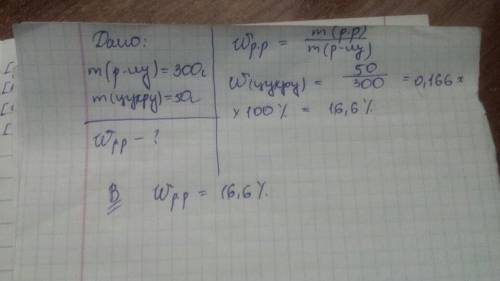 Дано:
m(р-ну) = 300г
m(цукру) = 50г
Wрр - ?
Wр.р = m(р.р) / m(р-ну)
W(цукру) = 50 / 300 = 0,166 ×
× 100% = 16,6%
В Wрр = 16,6%.